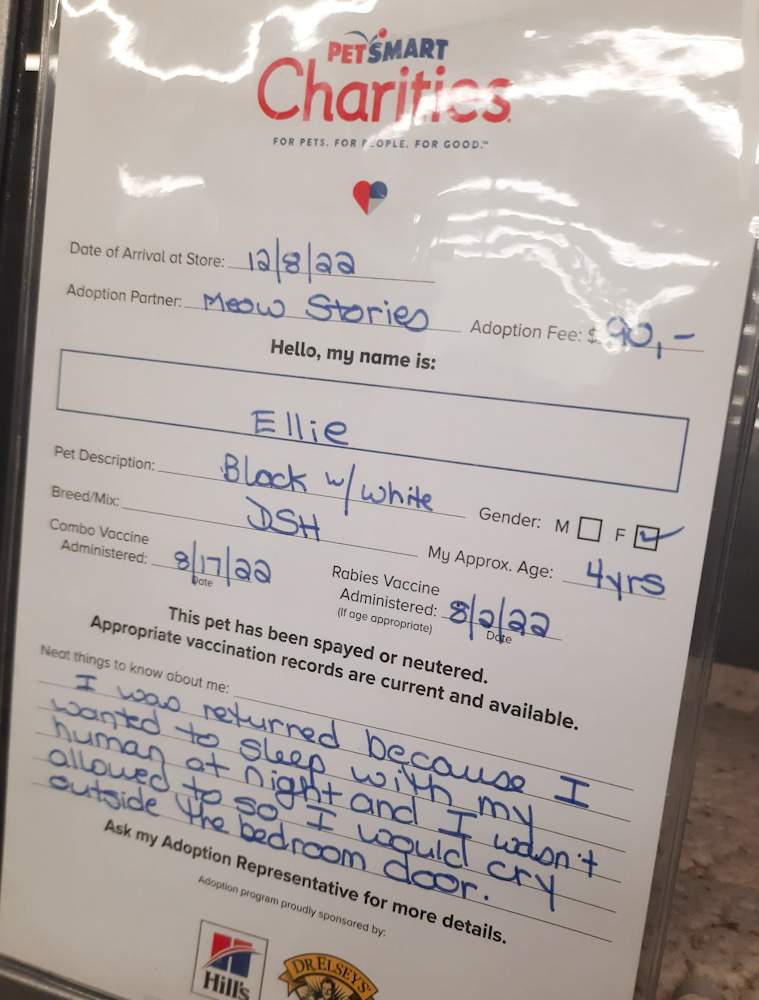 PETSMART
Charities
FOR PETS. FOR PEOPLE. FOR GOOD.™
Date of Arrival at Store: 12/8/22
Adoption Partner: Meow Stories Adoption Fee: $ 90,-
Hello, my name is:
Ellie
Pet Description: Black w/ white Gender: M F
Breed/Mix: DSH My Approx. Age: 4yrs
Combo Vaccine
Administered: 8/17/22
Date
Rabies Vaccine
Administered: 8/2/22
(If age appropriate)
Date
This pet has been spayed or neutered.
Appropriate vaccination records are current and available.
Neat things to know about me:
I was returned because I
wanted to sleep with my
human at night and I wasn't
allowed to so I would cry
outside the bedroom door.
Ask my Adoption Representative for more details.
Adoption program proudly sponsored by:
Hill's
DR ELSEY'S